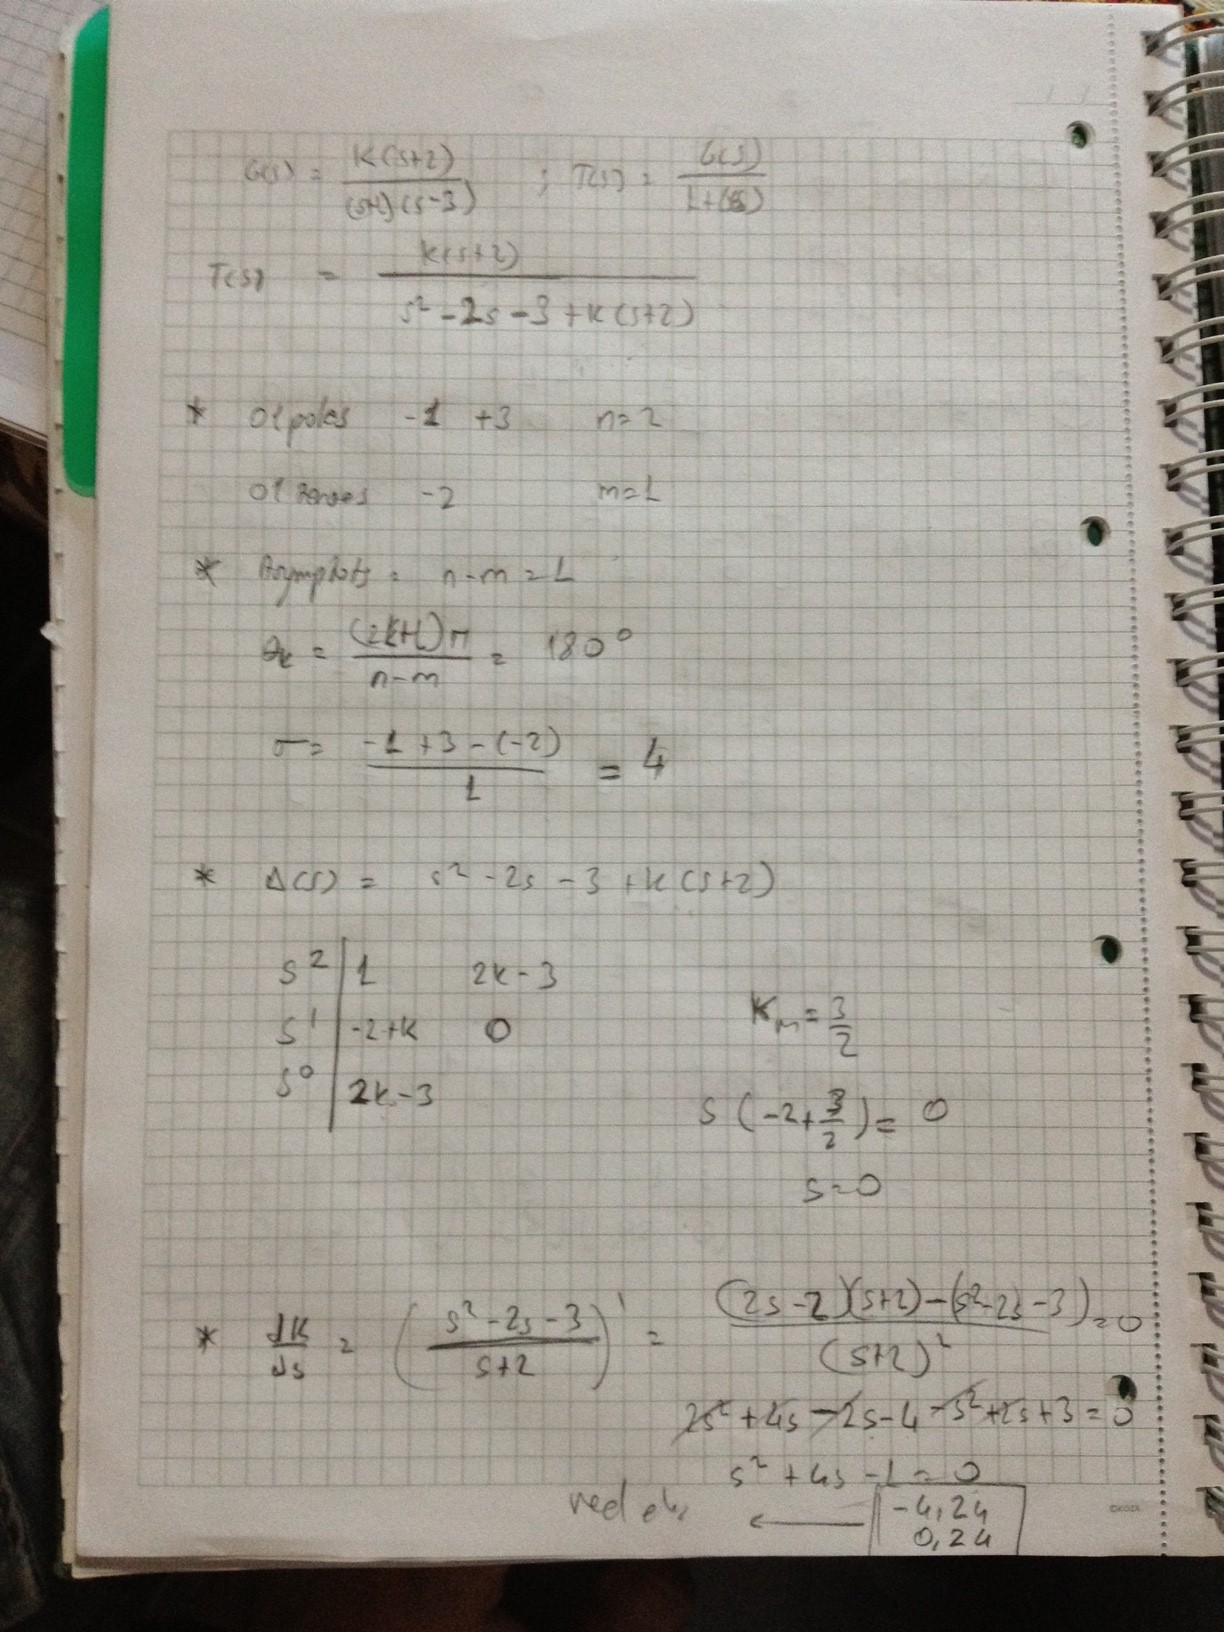 G(s) = K(s+2) / (s+1)(s-3) ; T(s) = G(s) / 1+G(s)
T(s) = k(s+2) / s² -2s -3 +k(s+2)
* Ol poles -1 +3 n=2
Ol zeroes -2 m=1
* Asymptots = n-m=1
θk = (2k+1)π / n-m = 180°
σ = -1+3-(-2) / 1 = 4
* Δ(s) = s² -2s -3 +k(s+2)
s² | 1 2k-3
s¹ | -2+k 0
s⁰ | 2k-3
Km = 3/2
s(-2+3/2) = 0
s=0
* dK/ds = (s²-2s-3 / s+2)' = (2s-2)(s+2)-(s²-2s-3) / (s+2)² = 0
2s²+4s-2s-4-s²+2s+3=0
s²+4s-1=0
-4,24
0,24